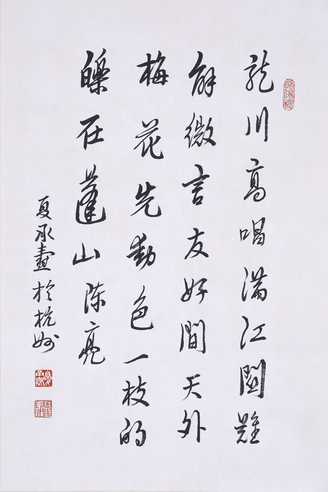 龍川高唱滿江關難
解微言友好間天外
梅花先動色一枝的
皪在蓬山陳亮
夏承燾於杭州